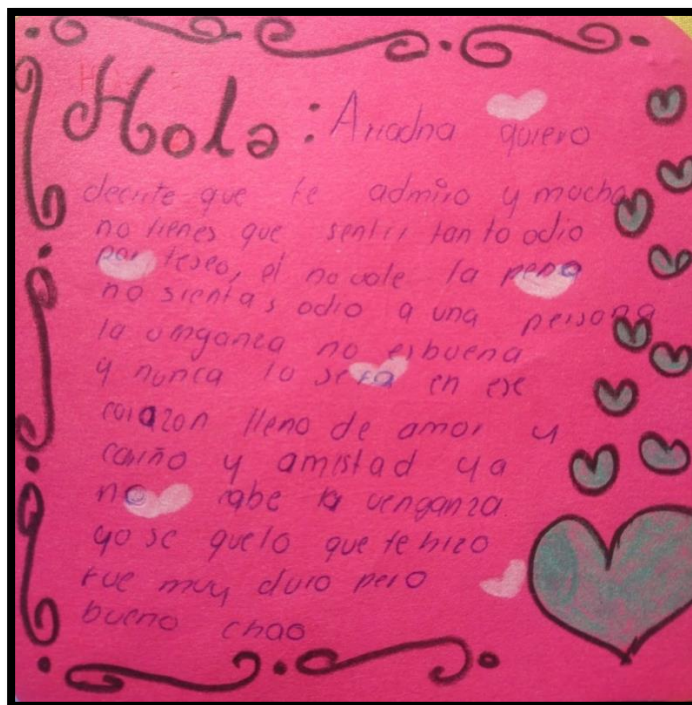 Hola: Ariadna quiero
decirte que te admiro y mucho
no tienes que sentir tanto odio
por teseo, el no vale la pena
no sientas odio a una persona
la venganza no es buena
y nunca lo sera en ese
corazon lleno de amor y
cariño y amistad ya
no cabe la venganza.
yo se que lo que te hizo
fue muy duro pero
bueno chao